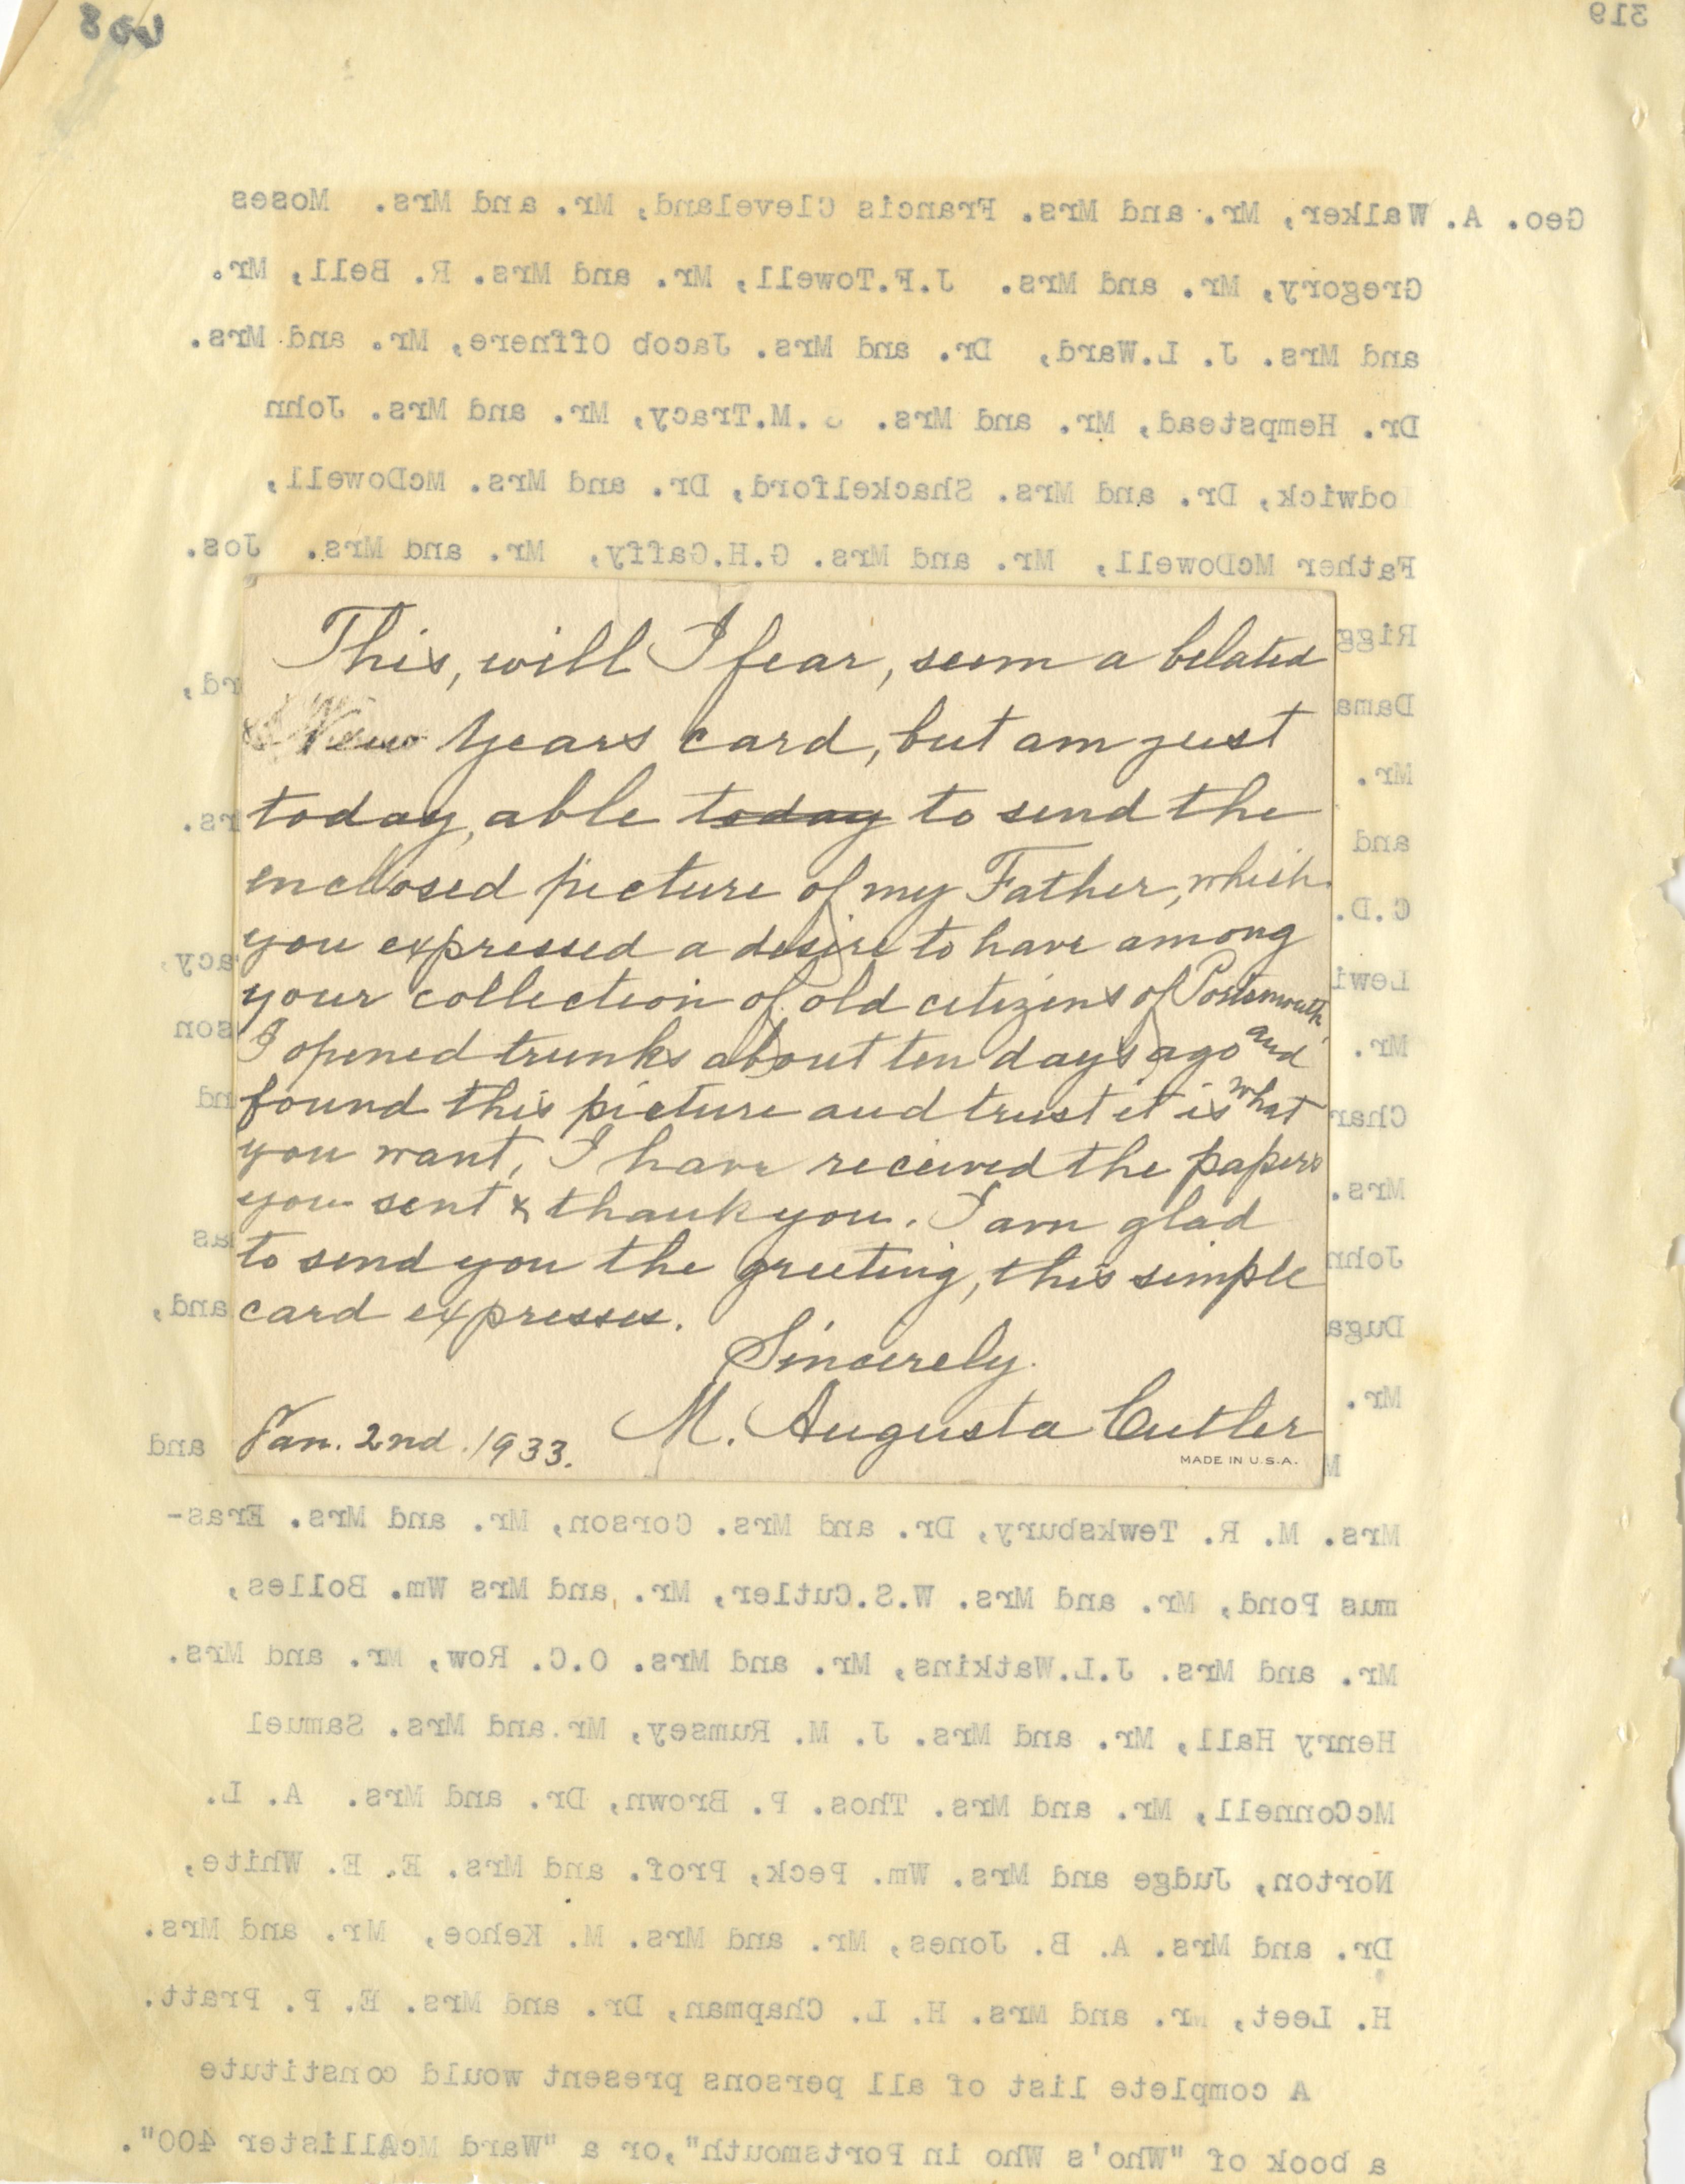 319
Geo. A. Walker, Mr. and Mrs. Francis Cleveland, Mr. and Mrs. Moses
Gregory, Mr. and Mrs. J.F.Towell, Mr. and Mrs. R. Bell, Mr.
and Mrs. J. L.Ward, Dr. and Mrs. Jacob Offnere, Mr. and Mrs.
Dr. Hempstead, Mr. and Mrs. .M.Tracy, Mr. and Mrs. John
odwick, Dr. and Mrs. Shackelford, Dr. and Mrs. McDowell,
Father McDowell, Mr. and Mrs. G.H.Gaffy, Mr. and Mrs. Jos.
This, will I fear, seem a belated
New Years card, but am just
today, able today to send the
enclosed picture of my Father, which
you expressed a desire to have among
your collection of old citizens of Portsmouth
I opened trunks about ten days ago and
found this picture and trust it is what
you want, I have received the papers
you sent & thank you. I am glad
to send you the greeting, this simple
card expresses.
Sincerely.
Jan. 2nd. 1933. M. Augusta Cutler
MADE IN U.S.A.
Rigg
Dama
rd,
Mr.
and
rs.
C.D.
Lewi
acy,
Mr.
son
Char
nd
Mrs.
John
as
Duga
and,
Mr.
M
and
Mrs. M. R. Tewksbury, Dr. and Mrs. Corson, Mr. and Mrs. Eras-
mus Pond, Mr. and Mrs. W.S.Cutler, Mr. and Mrs Wm. Bolles,
Mr. and Mrs. J.L.Watkins, Mr. and Mrs. O.C. Row, Mr. and Mrs.
Henry Hall, Mr. and Mrs. J. M. Rumsey, Mr.and Mrs. Samuel
McConnell, Mr. and Mrs. Thos. P. Brown, Dr. and Mrs. A. L.
Norton, Judge and Mrs. Wm. Peck, Prof. and Mrs. E. E. White,
Dr. and Mrs. A. B. Jones, Mr. and Mrs. M. Kehoe, Mr. and Mrs.
H. Leet, Mr. and Mrs. H. L. Chapman, Dr. and Mrs. E. P. Pratt.
A complete list of all persons present would constitute
a book of "Who's Who in Portsmouth",or a "Ward McAllister 400".